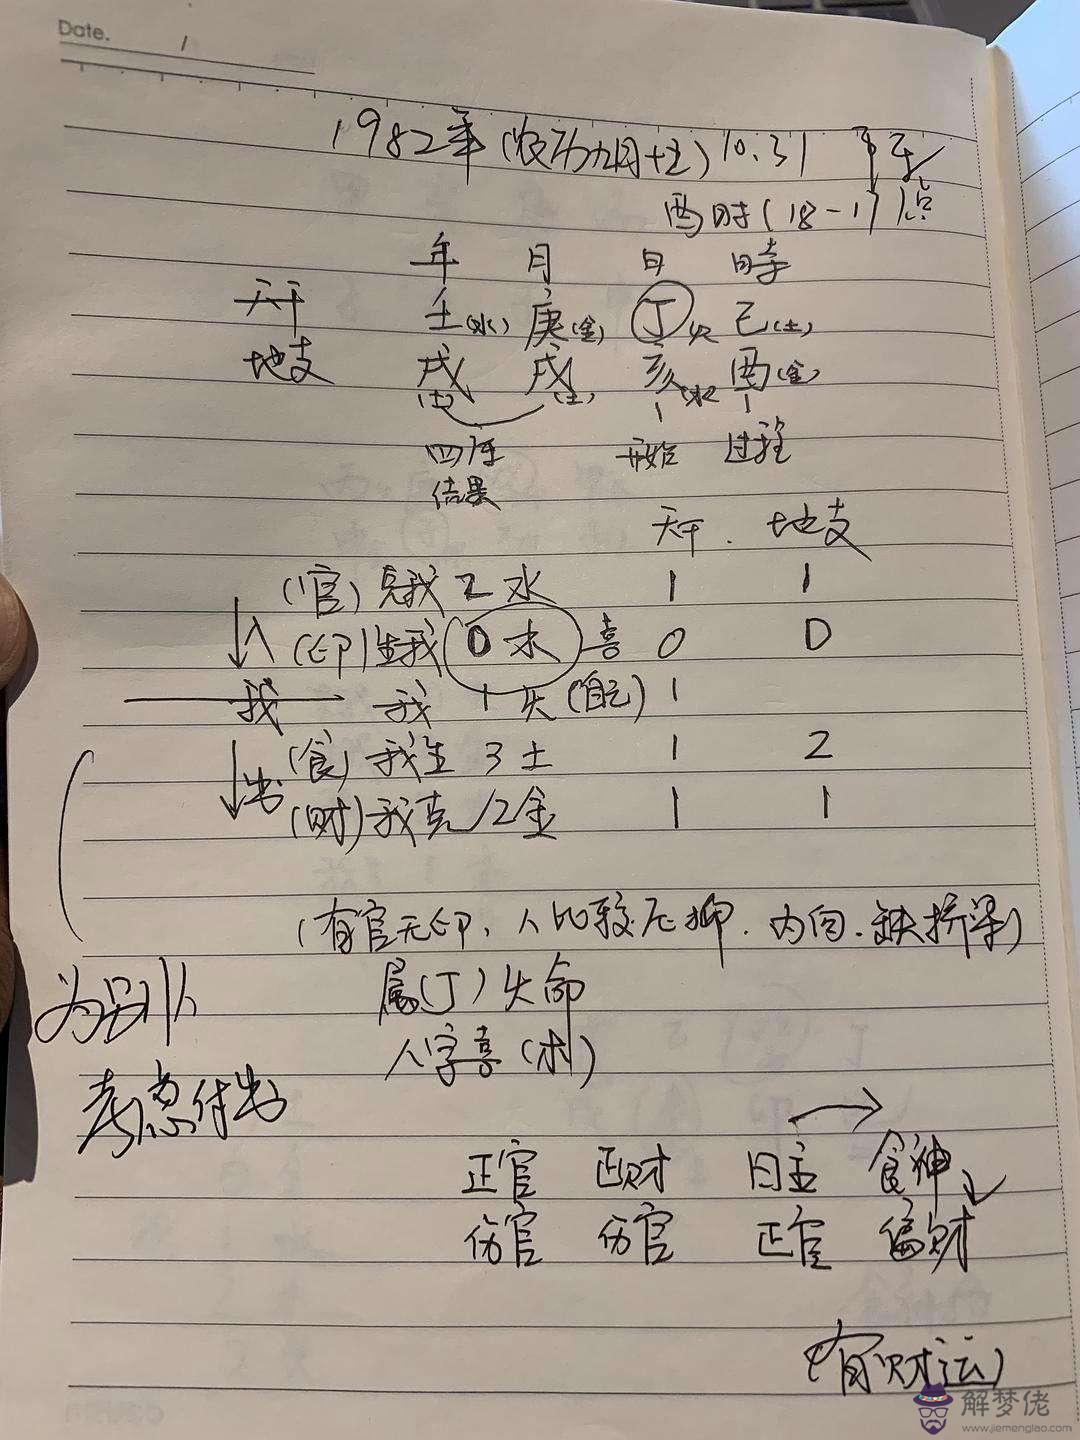 Date. /
1982年(农历九月十五)10.31
酉时(18-17)点
年 月 日 時
天干 壬(水) 庚(金) 丁火 己(土)
地支 戌(土) 戌(土) 亥(水) 酉(金)
四库 开始 过程
结果
天干 . 地支
(官)克我 2 水 1 1
入 (印)生我 0 木 喜 0 0
我 我 1 火(自己) 1
(食)我生 3 土 1 2
出 (财)我克 2金 1 1
(有官无印、人比较压抑.内向.缺桥梁)
为别人 属(丁)火命
八字喜(木)
考虑付出
正官 正财 日主 食神
伤官 伤官 正官 偏财
(有财运)
解梦佬
www.jiemenglao.com